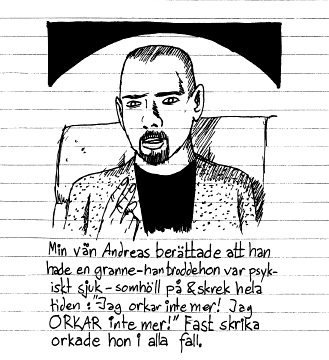 Min vän Andreas berättade att han
hade en granne-han trodde hon var psyk-
iskt sjuk-som höll på & skrek hela
tiden: "Jag orkar inte mer! Jag
ORKAR inte mer!" Fast skrika
orkade hon i alla fall.